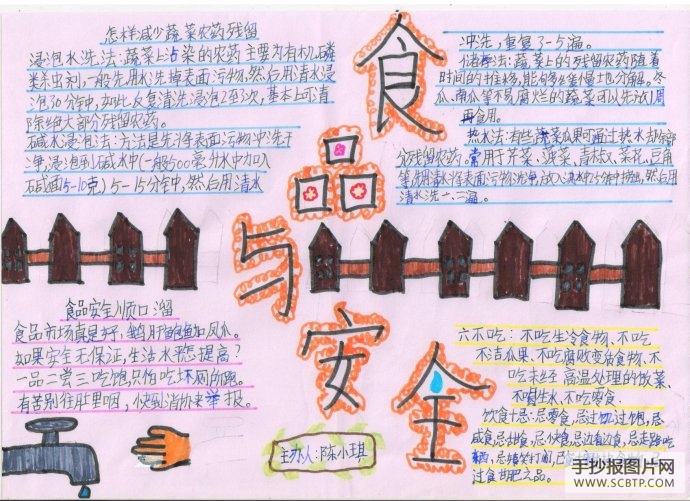 怎样减少蔬菜农药残留
浸泡水洗法:蔬菜上沾染的农药主要为有机磷
类杀虫剂,一般先用水洗掉表面污物,然后用清水浸
泡10分钟,如此反复清洗浸泡2至3次,基本上可清
除绝大部分残留农药。
碱水浸泡法:方法是先将表面污物冲洗干
净,浸泡到碱水中(一般500毫升水中加入
碱面5-10克)5-15分钟,然后用清水
冲洗,重复了-5遍。
储存法:蔬菜上的残留农药随着
时间的推移,能够缓慢地分解。冬
瓜、南瓜等不易腐烂的蔬菜可以先放1周
再食用。
热水法:有些蔬菜瓜果可通过热水去除部
分残留农药。常用于芹菜、菠菜、青椒、菜花、豆角
等先用清水将表面污物洗净,放入沸水中2-5分钟捞出,然后用
清水洗一、二遍。
食品与安全
食品安全顺口溜
食品市场真是好,鹅肝鲍鱼加凤爪。
如果安全无保证,生活水平怎提高?
一品二尝三吃饱,只怕吃坏厕所跑。
有苦别往肚里咽,快到消协来举报。
六不吃:不吃生冷食物、不吃
不洁瓜果、不吃腐败变质食物、不
吃未经高温处理的饭菜、
不喝生水、不吃零食.
饮食十忌:忌零食,忌过饥过饱,忌
咸食忌甜食,忌快食忌边看边食,忌走路吃
主办人:陈小琪
手抄报图片网
WWW.SCBTP.COM